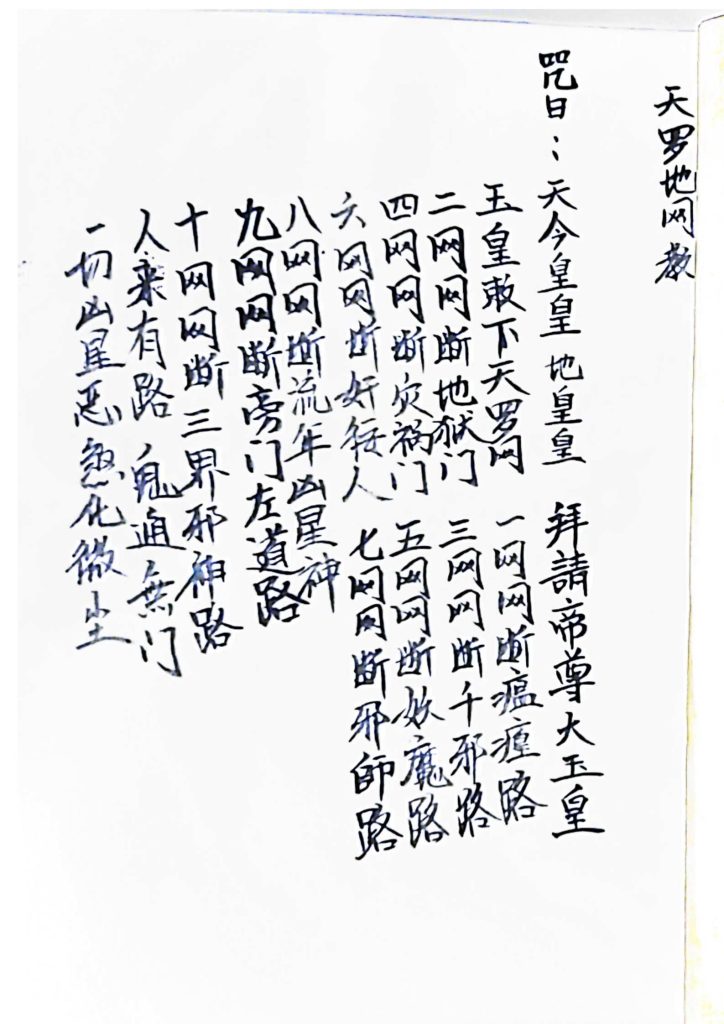 天罗地网教
咒曰：天今皇皇 地皇皇 拜請帝尊大玉皇
玉皇敕下天罗网 一网网断瘟瘟路
二网网断地狱门 三网网断千邪路
四网网断灾祸门 五网网断妖魔路
六网网断奸狡人 七网网断邪師路
八网网断流年凶星神
九网网断旁门左道路
十网网断三界邪神路
人来有路 鬼通無门
一切凶星恶煞化微尘